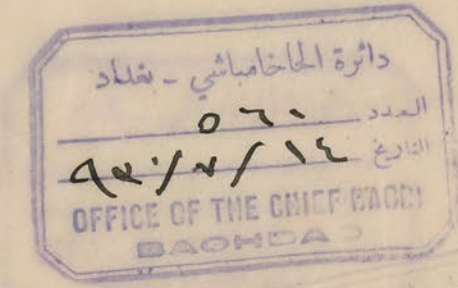 دائرة الحاخامباشي - بغداد
العدد ٥٦٠
التاريخ ١٤/٧/٩٣٠
OFFICE OF THE CHIEF RABBI
BAGHDAD